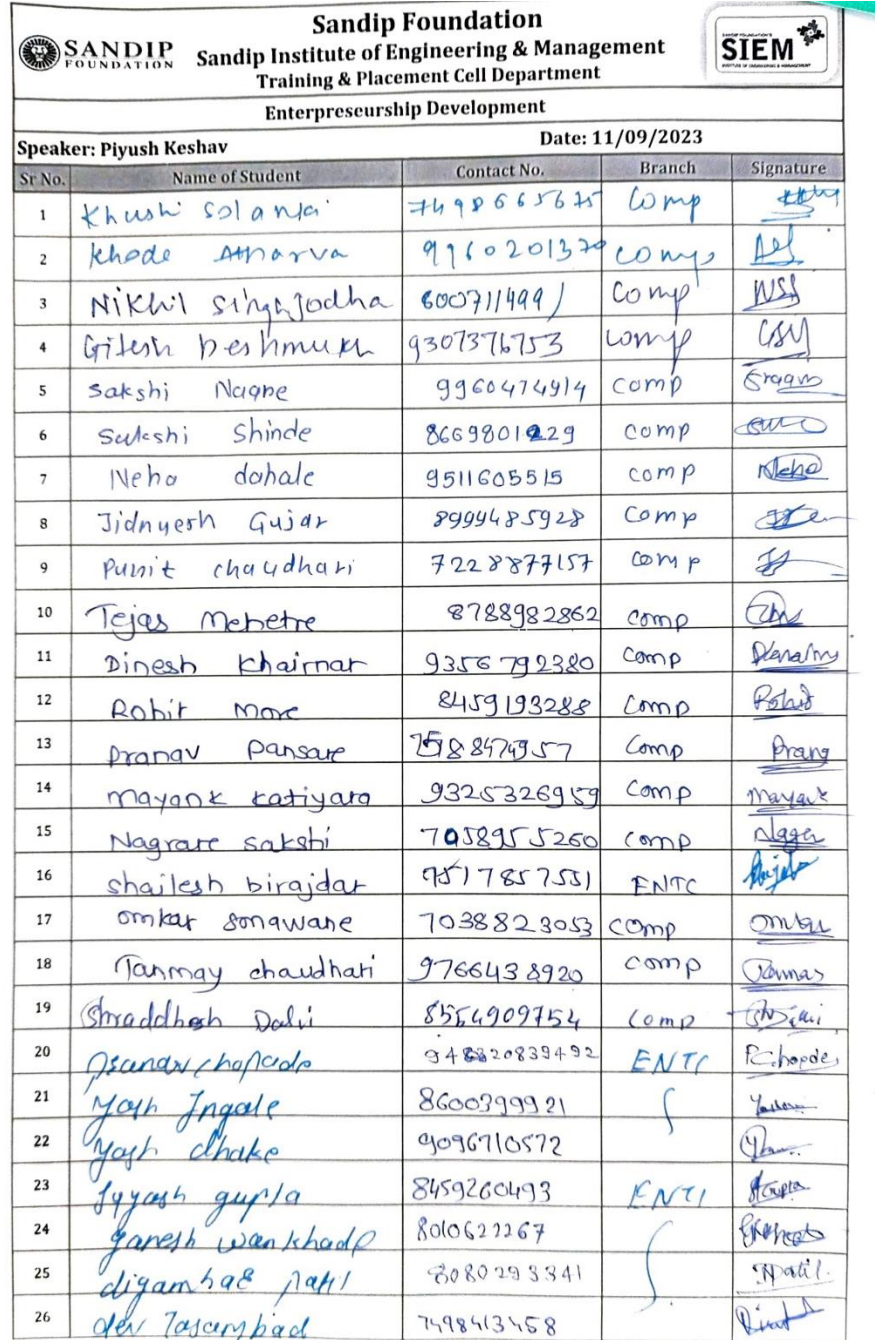 Sandip Foundation
SANDIP FOUNDATION
Sandip Institute of Engineering & Management
SIEM
Training & Placement Cell Department
Enterpreseurship Development
Speaker: Piyush Keshav Date: 11/09/2023
Sr No. Name of Student Contact No. Branch Signature
1 Khushi Solanki 7498665675 Comp
2 Khode Atharva 9960201370 comp
3 Nikhil Singh Jodha 600711499 Comp
4 Gitesh Deshmukh 9307376753 comp
5 Sakshi Nagne 9960474914 comp
6 Sakshi Shinde 8669801229 comp
7 Neha dahale 9511605515 comp Neha
8 Jidnyesh Gujar 8999485928 comp
9 Punit chaudhari 7228877157 comp
10 Tejas Mehetre 8788982862 comp
11 Dinesh Khairnar 9356792380 comp
12 Rohit More 8459193288 comp Rohit
13 Pranav Pansare 7588474957 Comp
14 Mayank Katiyara 9325326959 comp Mayank
15 Nagrare sakshi 7058955260 comp
16 shailesh birajdar 9517857551 ENTC
17 omkar sonawane 7038823053 comp omkar
18 Tanmay chaudhari 9766438920 comp
19 Shraddhesh Dalvi 8554909754 comp
20 ENTC
21 Yash Ingale 8600399921
22 Yash dhake 9096710572
23 gupta 8459260493 ENTC
24 ganesh wankhade 8010622267
25 patil 8080293341
26 dev 7498413458